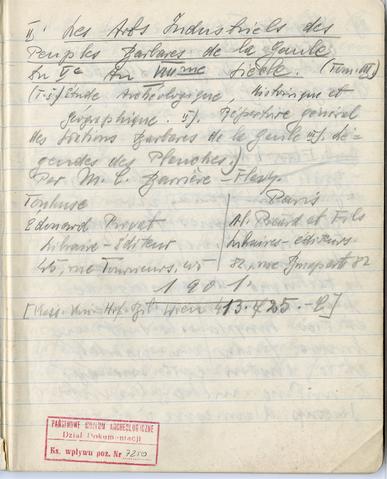 II. Les Arts Industriels des
Peuples Barbares de la Gaule
du Ve au VIIIme siècle. (Tom. III)
(T. I) Étude Archéologique, historique et
géographique. II). Répertoire général
des stations Barbares de la Gaule III). Lé-
gendes des Planches.
Par M. C. Barrière-Flavy
Toulouse
Edouard Privat
Libraire-Editeur
45, rue Tourneurs, 45
Paris
A. Picard et Fils
Libraires-éditeurs
82, rue Bonaparte 82
1901.
Hof. Wien 413.425.-C.]
PAŃSTWOWE MUZEUM ARCHEOLOGICZNE
Dział Dokumentacji
Ks. wpływu poz. Nr 7250